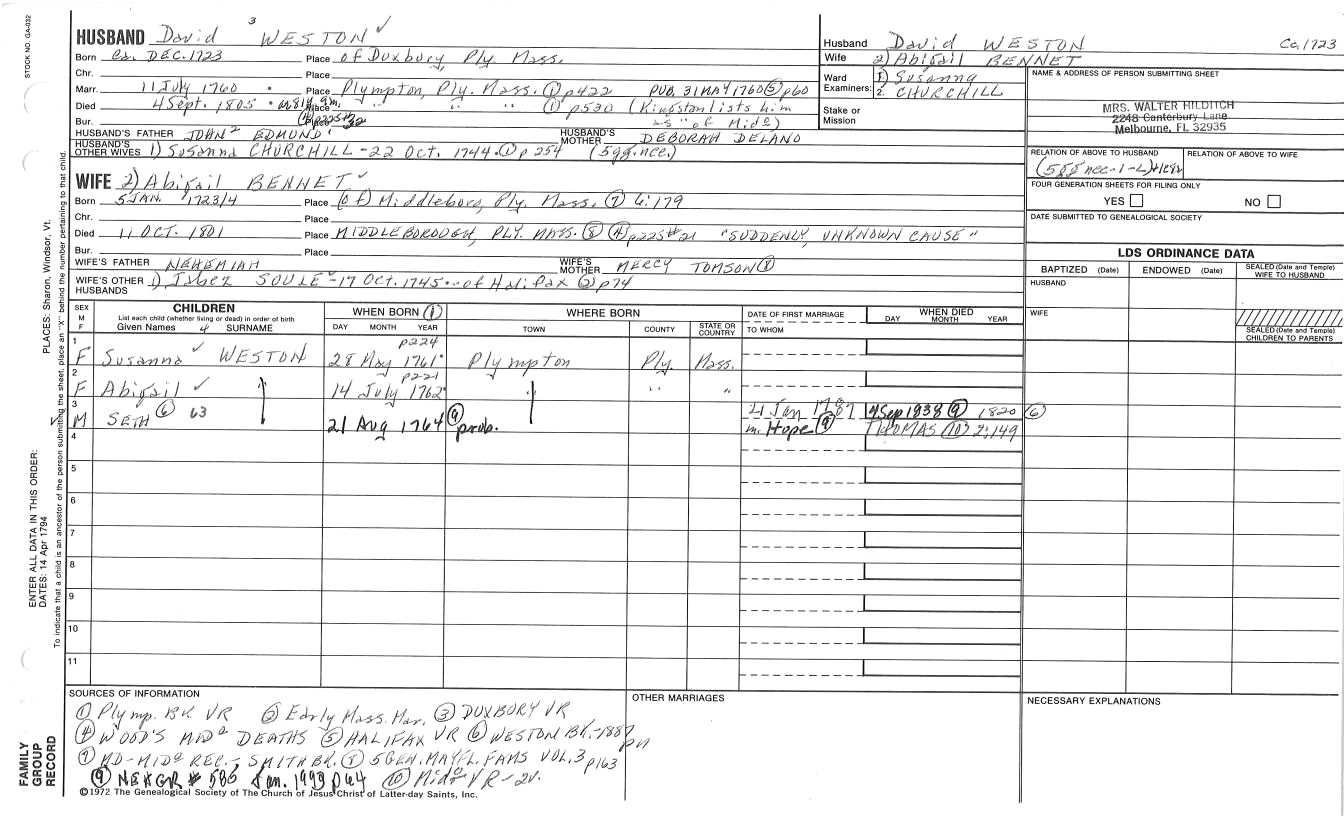 STOCK NO. GA-032
HUSBAND David ³ WESTON ✓
Born Ca. DEC. 1723 Place of Duxbury, Ply. Mass.
Chr. Place
Marr. 11 July 1760 Place Plympton, Ply. Mass. ① p422 PUB. 31 MAY 1760 ⑤ p60
Died 4 Sept. 1805 Place " " " ① p530 (Kingston lists him
Bur. Place as "of Midº)
HUSBAND'S FATHER JOHN² EDMUND¹ HUSBAND'S MOTHER DEBORAH DELANO
HUSBAND'S OTHER WIVES 1) Susanna CHURCHILL - 22 Oct. 1744. ① p 254 (5gg.nce.)
WIFE 2) Abigail BENNET ✓
Born 5 JAN. 1723/4 Place (of) Middleboro, Ply. Mass. ⑦ 6:179
Chr. Place
Died 11 OCT. 1801 Place MIDDLEBOROUGH, PLY. MASS. ⑧ ④ p225#21 "SUDDENLY, UNKNOWN CAUSE"
Bur. Place
WIFE'S FATHER NEHEMIAH WIFE'S MOTHER MERCY TOMSON ⑧
WIFE'S OTHER HUSBANDS 1) Jabez SOULE - 17 Oct. 1745 - of Halifax ② p74
Husband David WESTON Ca. 1723
Wife 2) Abigail BENNET
Ward Examiners: 1. Susanna
2. CHURCHILL
Stake or Mission
NAME & ADDRESS OF PERSON SUBMITTING SHEET
MRS. WALTER HILDITCH
2248 Canterbury Lane
Melbourne, FL 32935
RELATION OF ABOVE TO HUSBAND RELATION OF ABOVE TO WIFE
FOUR GENERATION SHEETS FOR FILING ONLY
YES NO
DATE SUBMITTED TO GENEALOGICAL SOCIETY
LDS ORDINANCE DATA
BAPTIZED (Date) ENDOWED (Date) SEALED (Date and Temple) WIFE TO HUSBAND
HUSBAND
WIFE
SEALED (Date and Temple) CHILDREN TO PARENTS
SEX M F
CHILDREN
List each child (whether living or dead) in order of birth
Given Names 4 SURNAME
WHEN BORN ①
DAY MONTH YEAR
WHERE BORN
TOWN COUNTY STATE OR COUNTRY
DATE OF FIRST MARRIAGE
TO WHOM
WHEN DIED
DAY MONTH YEAR
p224
1 F Susanna ✓ WESTON 28 May 1761 Plympton Ply. Mass.
p221
2 F Abigail ✓ 14 July 1762 " " "
3 ✓ M SETH ⑥ 63 21 Aug 1764 ⑨ prob. 21 Jan 1787 4 Sep 1838 ⑨ 1820 ⑥
m. Hope ⑨ THOMAS ⑩ 2:149
4
5
6
7
8
9
10
11
SOURCES OF INFORMATION
① Plymp. BK VR ② Early Mass. Mar. ③ DUXBURY VR
④ WOOD'S MIDº DEATHS ⑤ HALIFAX VR ⑥ WESTON BK.-1887
⑦ MD-MIDº REC.- SMITH BK. ⑧ 5 GEN. MAYFL. FAMS VOL. 3 p163
⑨ NEHGR # 585 Jan. 1993 p64 ⑩ Midº VR - 2v.
OTHER MARRIAGES
NECESSARY EXPLANATIONS
©1972 The Genealogical Society of The Church of Jesus Christ of Latter-day Saints, Inc.
FAMILY GROUP RECORD
ENTER ALL DATA IN THIS ORDER:
DATES: 14 Apr 1794
PLACES: Sharon, Windsor, Vt.
To indicate that a child is an ancestor of the person submitting the sheet, place an "X" behind the number pertaining to that child.